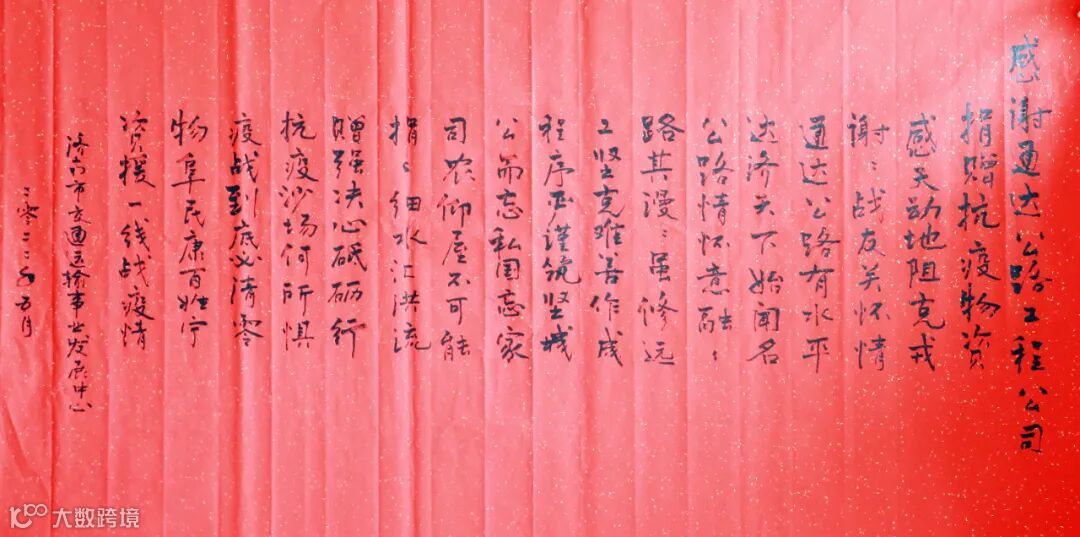 感谢通达公路工程公司
捐赠抗疫物资
感天动地阻克戎
谢〻战友关怀情
通达公路有水平
达济天下始闻名
公路情怀意融〻
路其漫〻虽修远
工坚克难善作成
程序严谨筑坚城
公而忘私国忘家
司农仰屋不可能
捐〻细水汇洪流
赠强决心砥砺行
抗疫沙场何所惧
疫战到底必清零
物阜民康百姓宁
资援一线战疫情
济南市交通运输事业发展中心
二零二二年五月
大数跨境